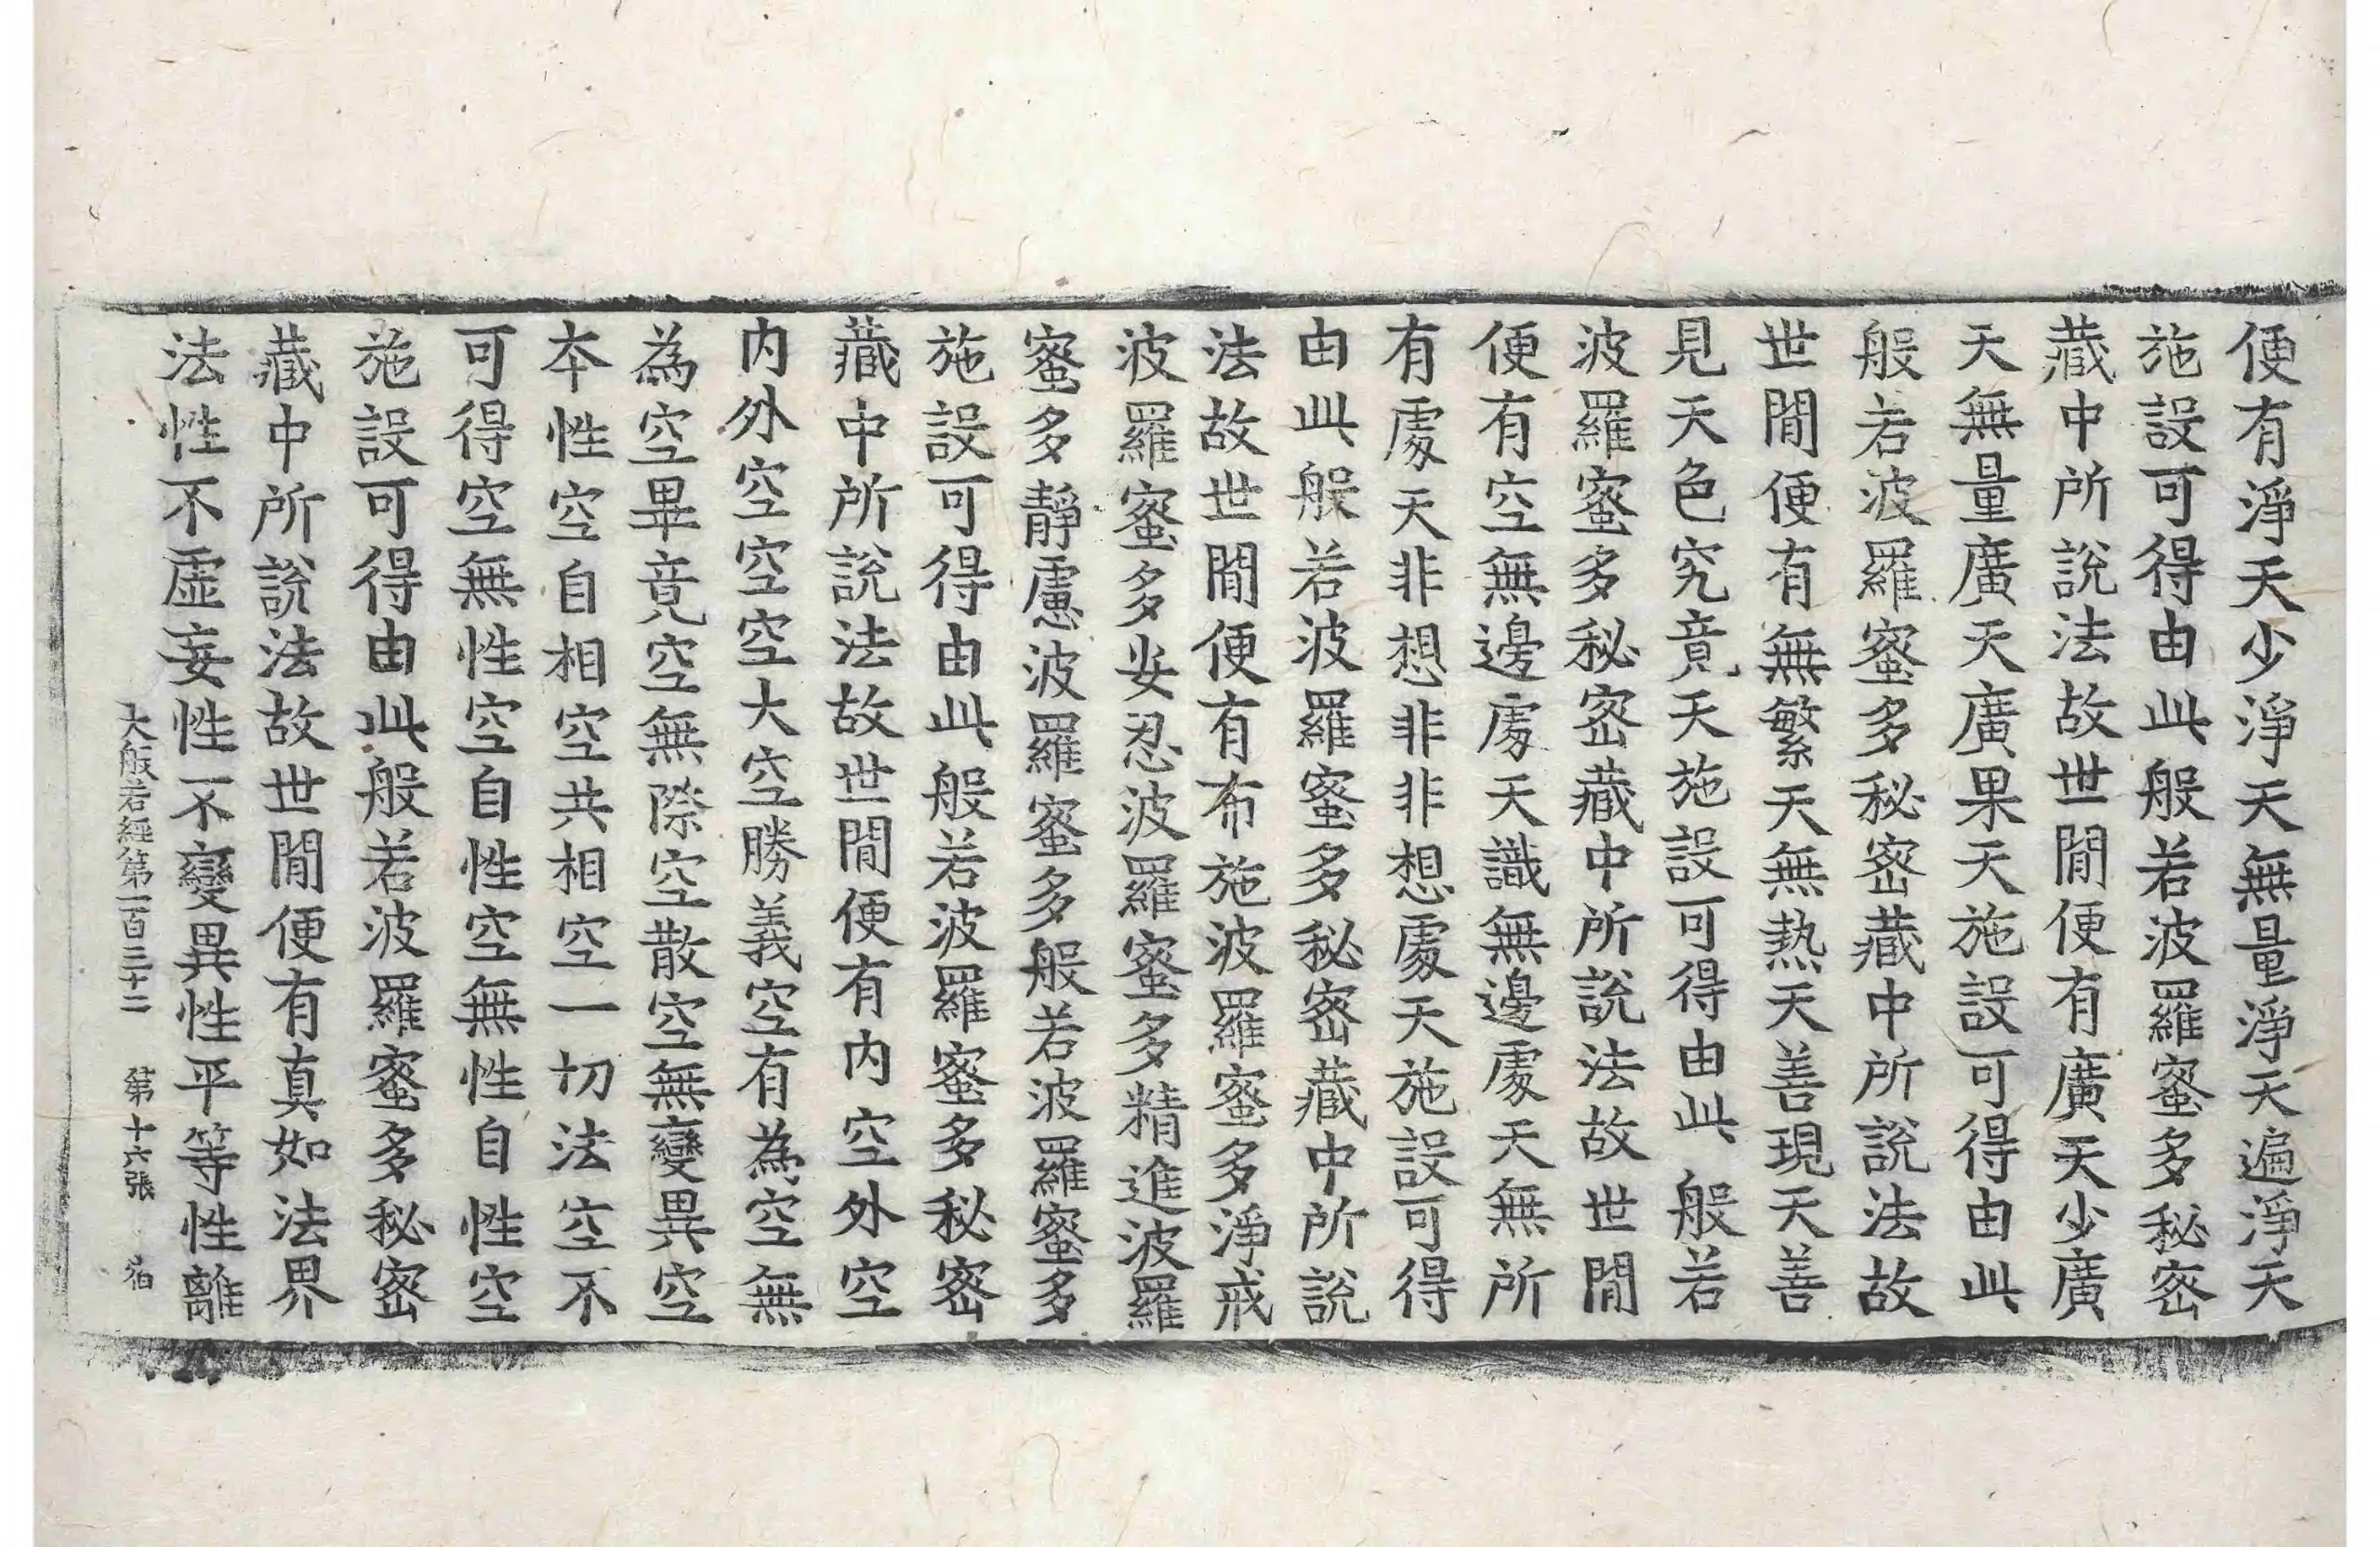 便有淨天少淨天無量淨天遍淨天
施設可得由此般若波羅蜜多秘密
藏中所說法故世閒便有廣天少廣
天無量廣天廣果天施設可得由此
般若波羅蜜多秘密藏中所說法故
世閒便有無繁天無熱天善現天善
見天色究竟天施設可得由此般若
波羅蜜多秘密藏中所說法故世閒
便有空無邊處天識無邊處天無所
有處天非想非非想處天施設可得
由此般若波羅蜜多秘密藏中所說
法故世閒便有布施波羅蜜多淨戒
波羅蜜多安忍波羅蜜多精進波羅
蜜多靜慮波羅蜜多般若波羅蜜多
施設可得由此般若波羅蜜多秘密
藏中所說法故世閒便有內空外空
內外空空空大空勝義空有為空無
為空畢竟空無際空散空無變異空
本性空自相空共相空一切法空不
可得空無性空自性空無性自性空
施設可得由此般若波羅蜜多秘密
藏中所說法故世閒便有真如法界
法性不虛妄性不變異性平等性離
大般若經第一百三十二 第十六張 宿